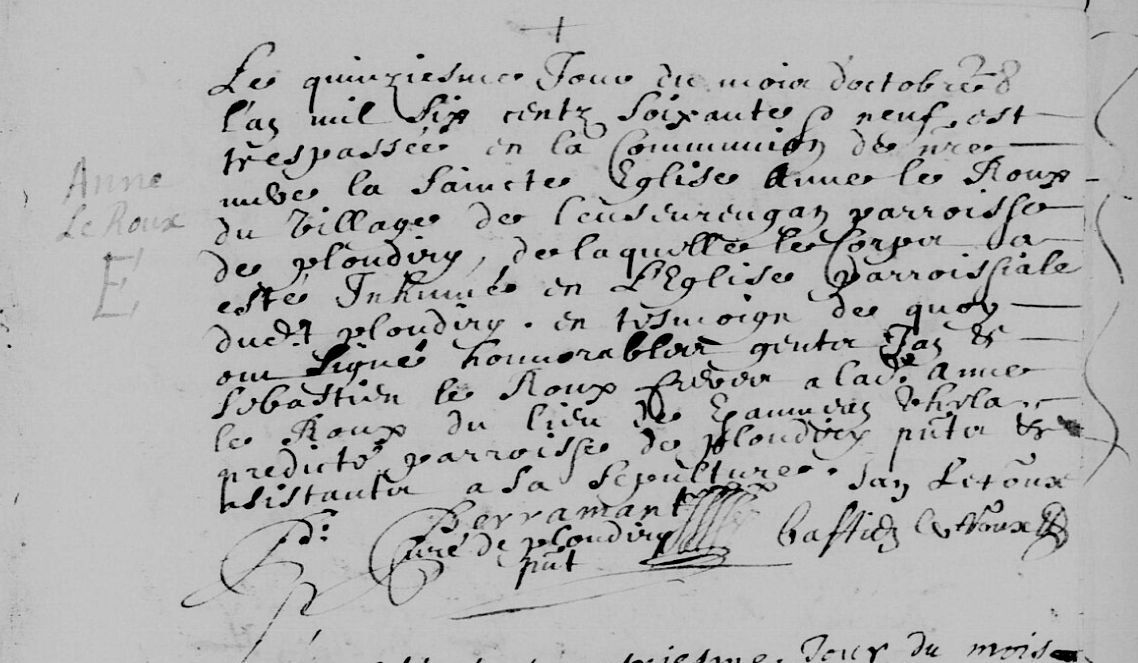 Anne
Le Roux
E
Le quinziesme Jour du mois d'octobre
l'an mil six centz soixante & neuf, est
trespassée en la Communion de nre
mere la saincte Eglise Anne le Roux
du village de parroisse
de ploudiry, de laquelle le corps a
esté Inhumé en L'Eglise parroissiale
dudt ploudiry. en tesmoign de quoy
ont signé honnorables gents Jan &
Sebastien le Roux freres a lade Anne
le Roux du lieu de la
predicte parroisse de ploudiry pnts &
assistants a sa sepulture. Jan Le roux
Perramant
Curé de ploudiry
pnt
bastien le Roux
Jour du mois